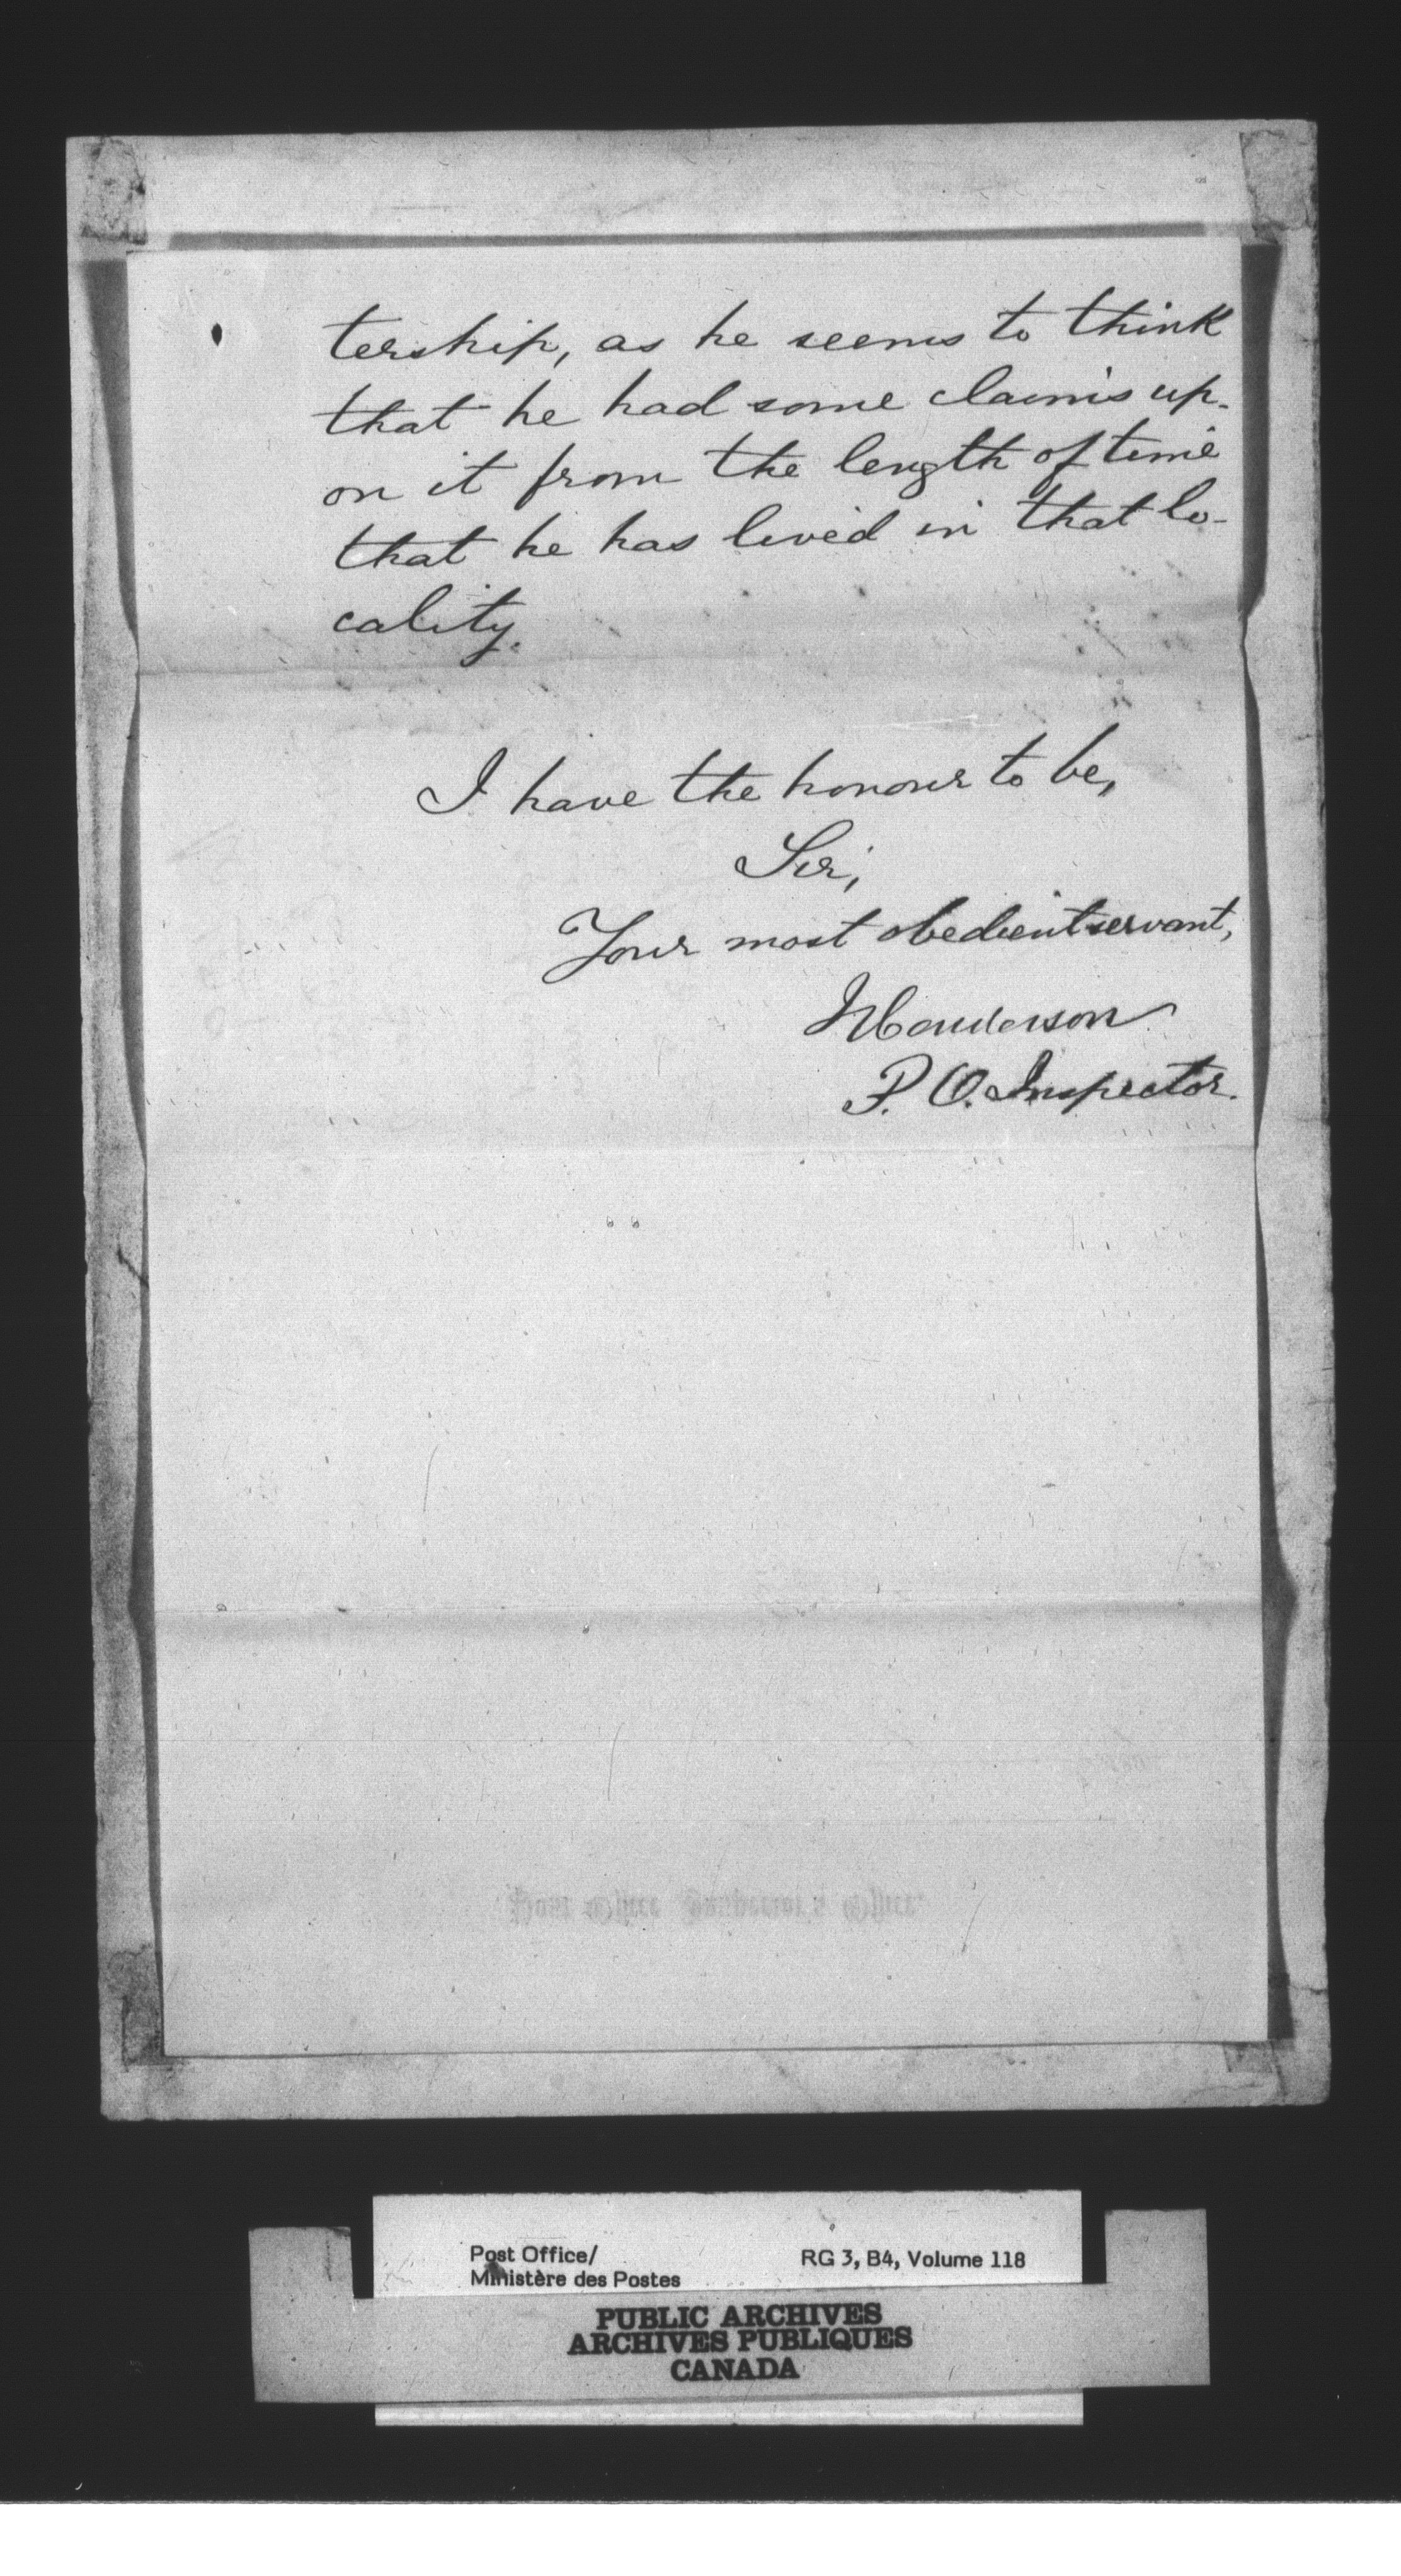 tership, as he seems to think
that he had some claims up-
on it from the length of time
that he has lived in that lo-
cality.
I have the honour to be,
Sir,
Your most obedient servant,
P. O. Inspector.
Post Office Inspector's Office
Post Office/
Ministère des Postes
RG 3, B4, Volume 118
PUBLIC ARCHIVES
ARCHIVES PUBLIQUES
CANADA